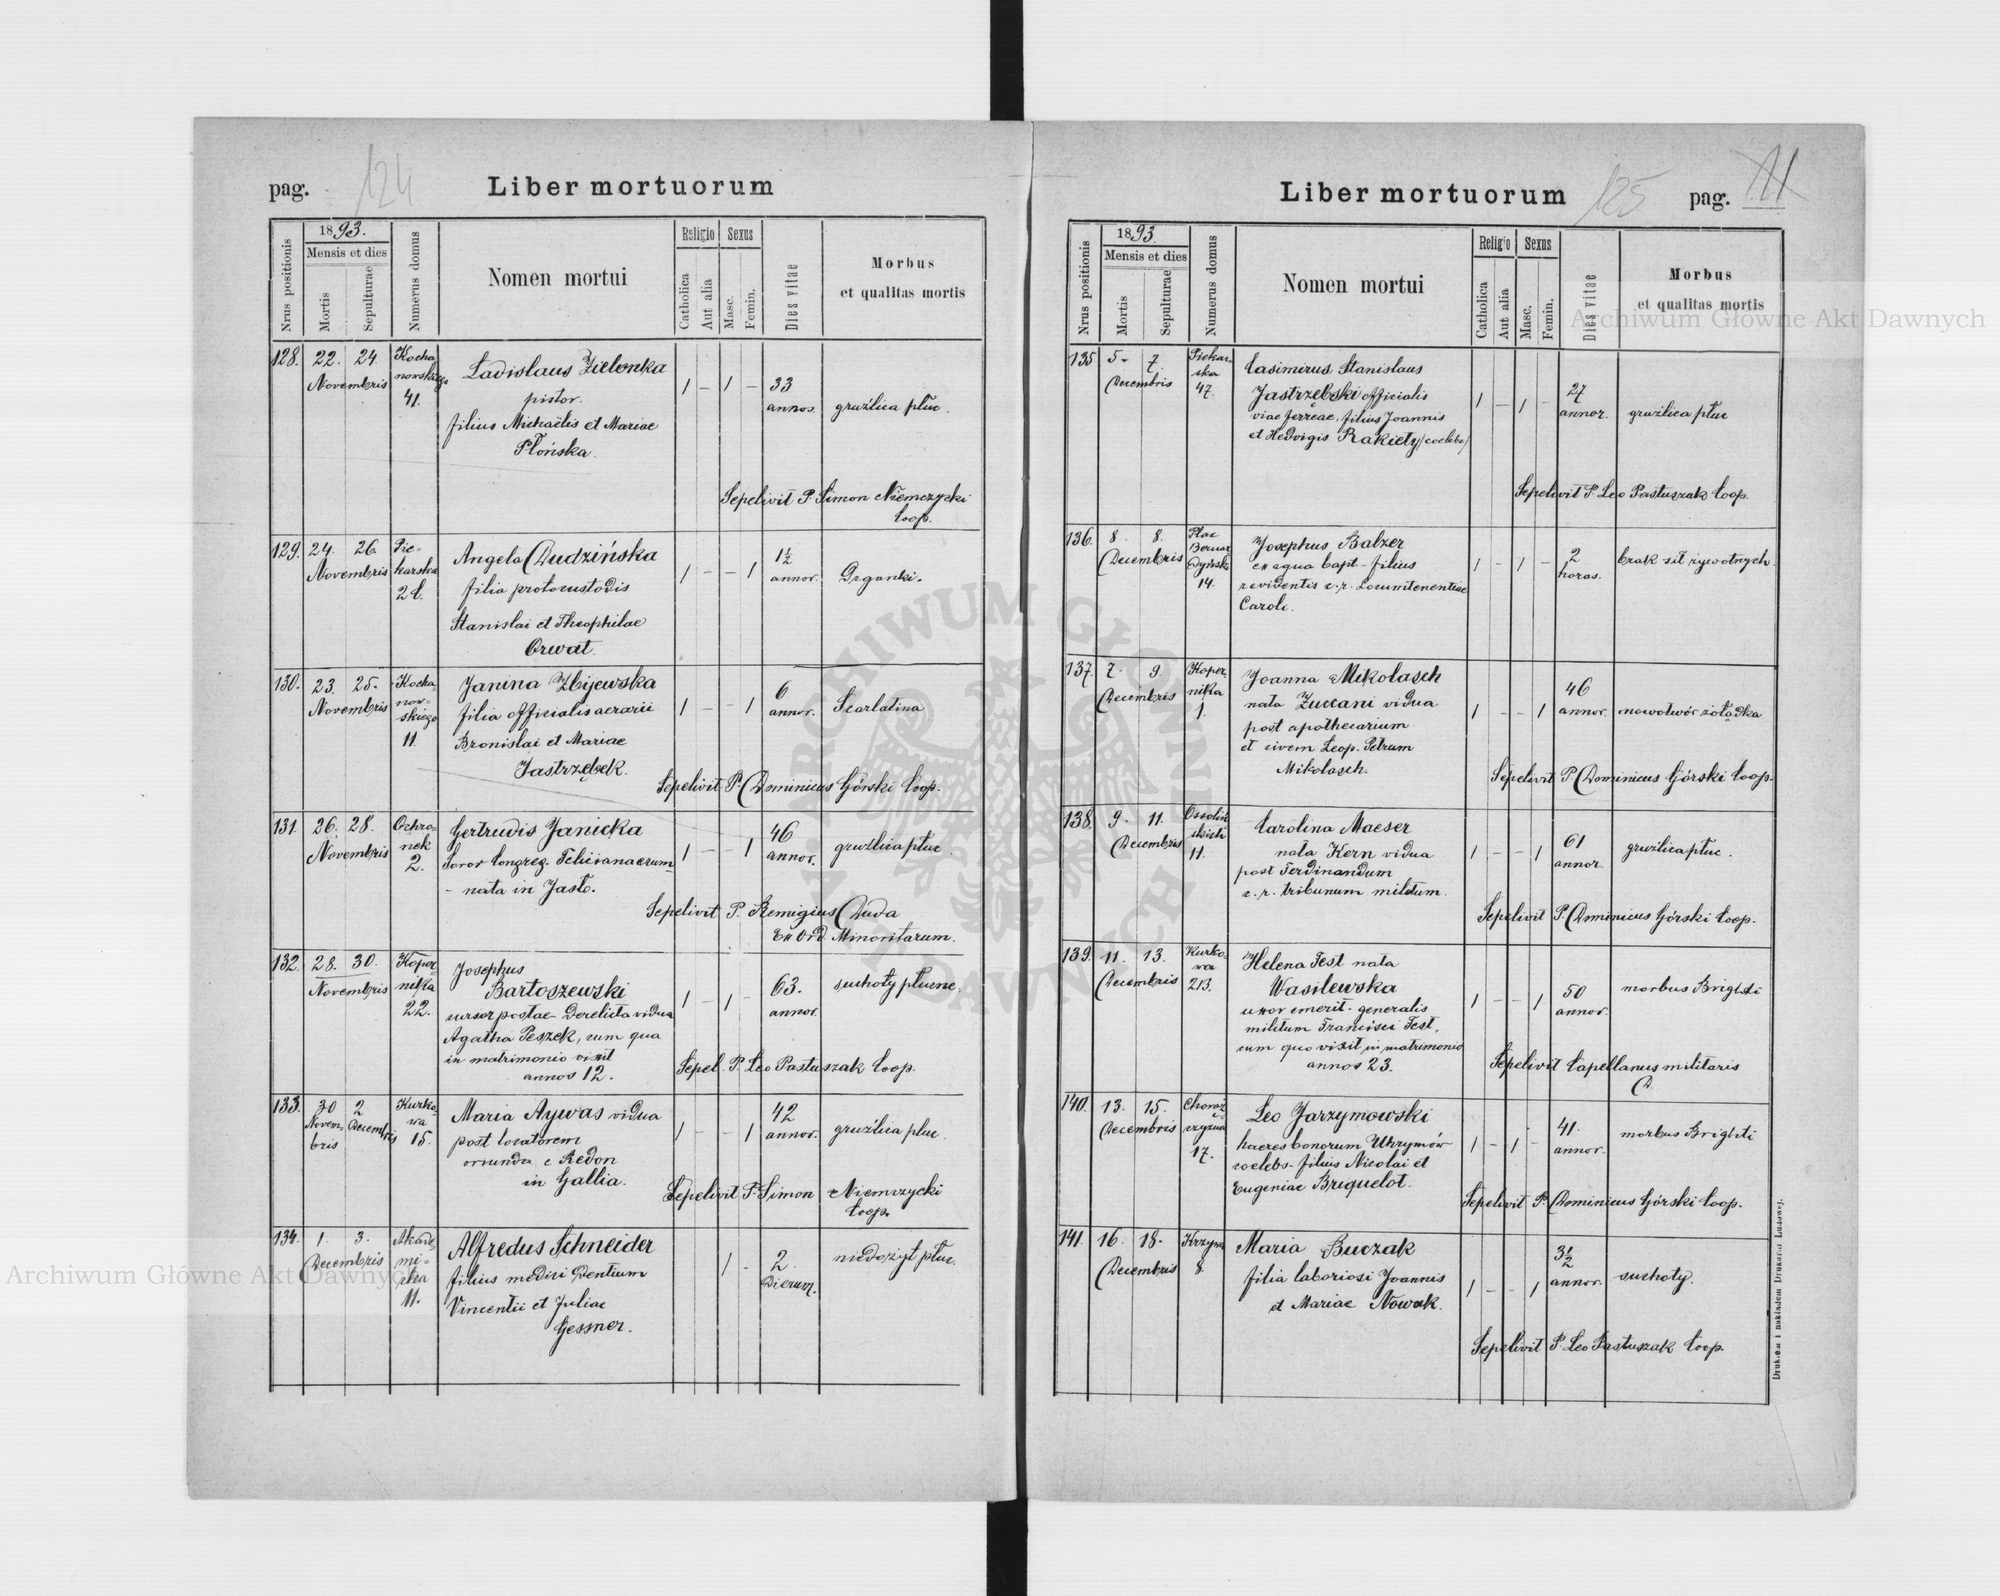 pag. 124
Liber mortuorum
Nrus positionis
1893.
Mensis et dies
Mortis
Sepulturae
Numerus domus
Nomen mortui
Religio
Catholica
Aut alia
Sexus
Masc.
Femin.
Dies vitae
Morbus
et qualitas mortis
128. 22. 24
Novembris
Kocha
nowskiego
41.
Ladislaus Zielonka
pistor.
filius Michaëlis et Mariae
Płońska.
1 – 1 –
33
annos.
gruźlica płuc.
Sepelivit P. Simon Niemczycki
Coop.
129. 24. 26
Novembris
Pie-
karska
2 b.
Angela Dudzińska
filia protocustodis
Stanislai et Theophilae
Orwat.
1 – – 1
1 1/2
annor.
Drgawki.
130. 23. 25.
Novembris
Kocha-
now-
skiego
11.
Janina Zbijewska
filia officialis aerarii
Bronislai et Mariae
Jastrzębek.
1 – – 1
6
annor.
Scarlatina
Sepelivit P. Dominicus Górski Coop.
131. 26. 28.
Novembris
Ochro-
nek
2.
Gertrudis Janicka
Soror Congreg. Felicianaerum
– nata in Jasło.
1 – – 1
46
annor.
gruźlica płuc
Sepelivit P. Remigius Duda
Ex Ord Minoritarum.
132. 28. 30.
Novembris
Koper-
nika
22.
Josephus
Bartoszewski
cursor postae – Derelicta vidua
Agatha Peszek, cum qua
in matrimonio vixit
annos 12.
1 – 1 –
63.
annor.
suchoty płucne.
Sepel. P. Leo Pastuszak Coop.
133. 30 2
Novem-
bris
Decembris
Kurko-
wa
15.
Maria Aywas vidua
post locatorem
oriunda e Redon
in Gallia.
1 – – 1
42
annor.
gruźlica płuc.
Sepelivit P. Simon Niemczycki
Coop.
134. 1. 3.
Decembris
Akade-
mi-
cka
11.
Alfredus Schneider
filius medici Dentium
Vincentii et Juliae
Gessner.
1 –
2.
Dierum.
niedożyt płuc.
Liber mortuorum
125
pag. 11
Nrus positionis
1893.
Mensis et dies
Mortis
Sepulturae
Numerus domus
Nomen mortui
Religio
Catholica
Aut alia
Sexus
Masc.
Femin.
Dies vitae
Morbus
et qualitas mortis
135 5. 7.
Decembris
Piekar-
ska
47.
Casimirus Stanislaus
Jastrzębski officialis
viae ferreae, filius Joannis
et Hedvigis Rakiety /coelebs/
1 – 1 –
27
annor.
gruźlica płuc
Sepelivit P. Leo Pastuszak Coop.
136. 8. 8.
Decembris
Plac
Bernar
Dyński
14.
Josephus Balzer
ex aqua bapt – filius
revidentis c.r. Locumtenentiae
Caroli.
1 – 1 –
2
horas.
brak sił żywotnych.
137. 7. 9.
Decembris
Koper-
nika
1.
Joanna Mikolasch
nata Zuccani vidua
post apothecarium
et civem Leop. Petrum
Mikolasch.
1 – – 1
46
annor.
nowotwór żołądka
Sepelivit P. Dominicus Górski Coop.
138. 9. 11.
Decembris
Ossoliń
skich
11.
Carolina Maeser
nata Kern vidua
post Ferdinandum
c.r. tribunum militum.
1 – – 1
61
annor.
gruźlica płuc.
Sepelivit P. Dominicus Górski Coop.
139. 11. 13.
Decembris
Kurko-
wa
213.
Helena Fest nata
Wasilewska
uxor emerit. generalis
militum Francisci Fest,
cum quo vixit in matrimonio
annos 23.
1 – – 1
50
annor.
morbus Brighti
Sepelivit Capellanus militaris
140. 13. 15.
Decembris
Chorąż
czyzna
17.
Leo Jarzymowski
haeres bonorum Uhrynów
coelebs – filius Nicolai et
Eugeniae Briquelot.
1 – 1 –
41.
annor.
morbus Brighti
Sepelivit P. Dominicus Górski Coop.
141. 16. 18.
Decembris
Krzywa
8.
Maria Buczak
filia laboriosi Joannis
et Mariae Nowak.
1 – – 1
3 1/2
annor.
suchoty.
Sepelivit P. Leo Pastuszak Coop.
Drukiem i nakładem Drukarni Ludowej.
Archiwum Główne Akt Dawnych
Archiwum Główne Akt Dawnych
ARCHIWUM GŁÓWNE AKT DAWNYCH